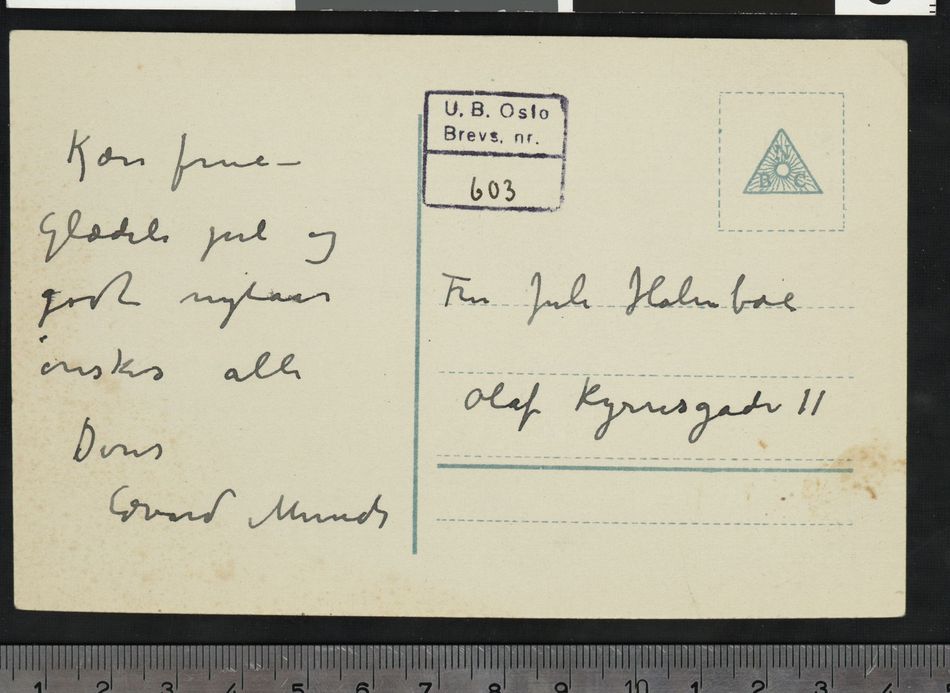 Kære frue –
Glædelig jul og
godt nytaar
ønskes alle
Deres
Edvard Munch
U. B. Oslo
Brevs. nr.
603
N
B C
Fru Juli Holmboe
Olaf Kyrresgade 11
1 2 3 4 5 6 7 8 9 10 1 2 3 4